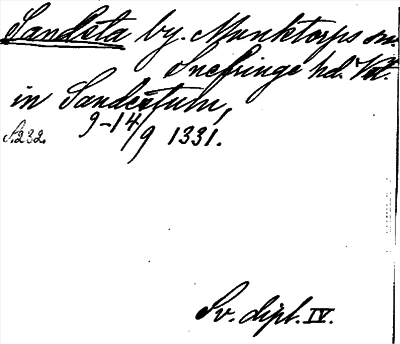 Sandsta by. Munktorps sn.
Snefringe hd. Vstl.
in Sandestum,
S.232. 9-14/9 1331.
Sv. dipl. IV.